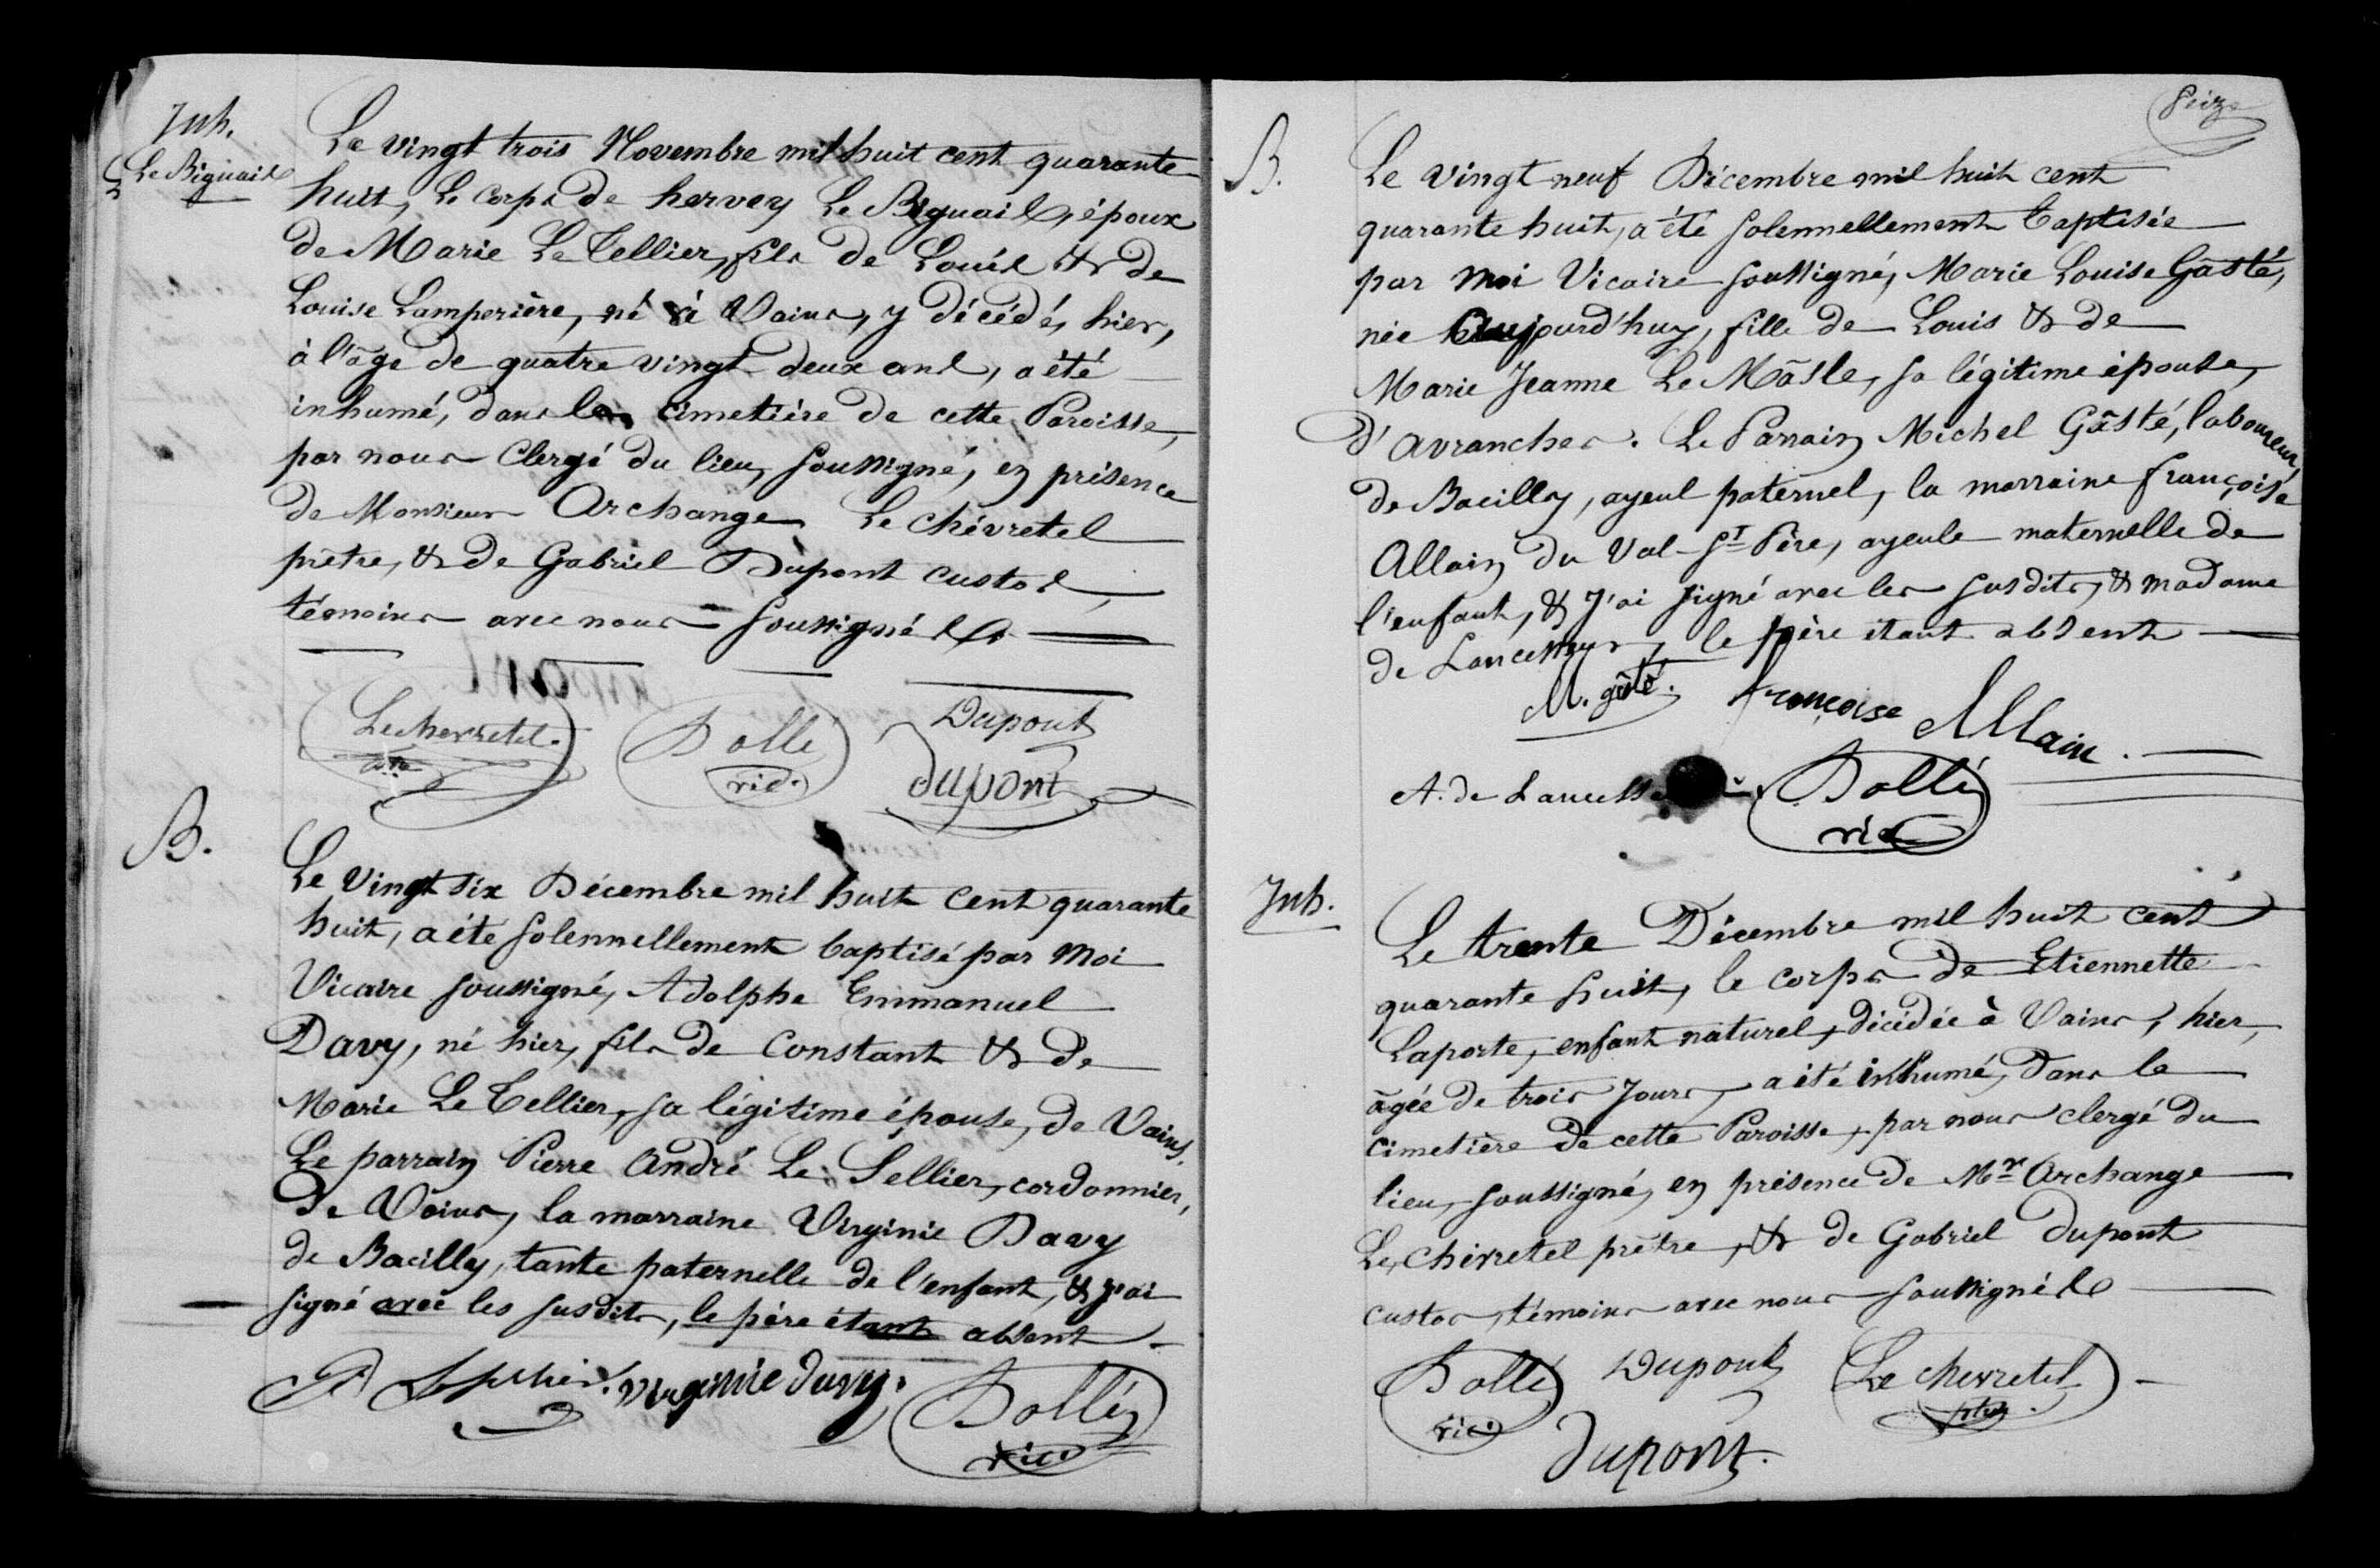 Inh.
Le Biguais
Le vingt trois Novembre mil huit cent quarante
huit, le corps de hervey Le Biguais, époux
de Marie Le Tellier, fils de Louis & de
Louise Lamperière, né à Vains, y décédé, hier,
à l'âge de quatre vingt deux ans, a été
inhumé, dans le cimetière de cette Paroisse,
par nous Clergé du lieu, soussigné, en présence
de Monsieur Archange Le Chévretel
prêtre, & de Gabriel Dupont custos,
témoins avec nous soussignés
Lechevretel
Dollé
Dupont
ptre
vic.
dupont
B.
Le vingt six Décembre mil huit cent quarante
huit, a été solennellement baptisé par moi
Vicaire soussigné, Adolphe Emmanuel
Davy, né hier, fils de Constant & de
Marie Le Tellier, sa légitime épouse, de Vains.
Le parrain Pierre André Le Sellier, cordonnier,
de Vains, la marraine Virginie Davy
de Bacilly, tante paternelle de l'enfant, & j'ai
signé avec les susdits, le père étant absent
virginie davy.
Dollé
vic
Seize
B.
Le vingt neuf Décembre mil huit cent
quarante huit, a été solennellement baptisée
par moi Vicaire soussigné, Marie Louise Gâsté,
née aujourd'huy, fille de Louis & de
Marie Jeanne Le Mâsle, sa légitime épouse,
d'avranches. Le Parrain Michel Gâsté, laboureur,
de Bacilly, ayeul paternel, la marraine françoise
Allain du Val-St Père, ayeule maternelle de
l'enfant, & j'ai signé avec les susdits, & madame
de le père étant absent
M. gâté.
françoise Allain.
A. de
Dollé
vic
Inh.
Le trente Décembre mil huit cent
quarante huit, le corps de Etiennette
Laporte, enfant naturel, décédée à Vains, hier,
âgée de trois jours, a été inhumé, dans le
cimetière de cette Paroisse, par nous clergé du
lieu, soussigné, en présence de Mr Archange
Le Chévretel prêtre, & de Gabriel Dupont
custos, témoins avec nous soussignés
Dollé
Dupont
Le chevretel
vic.
ptre.
dupont.